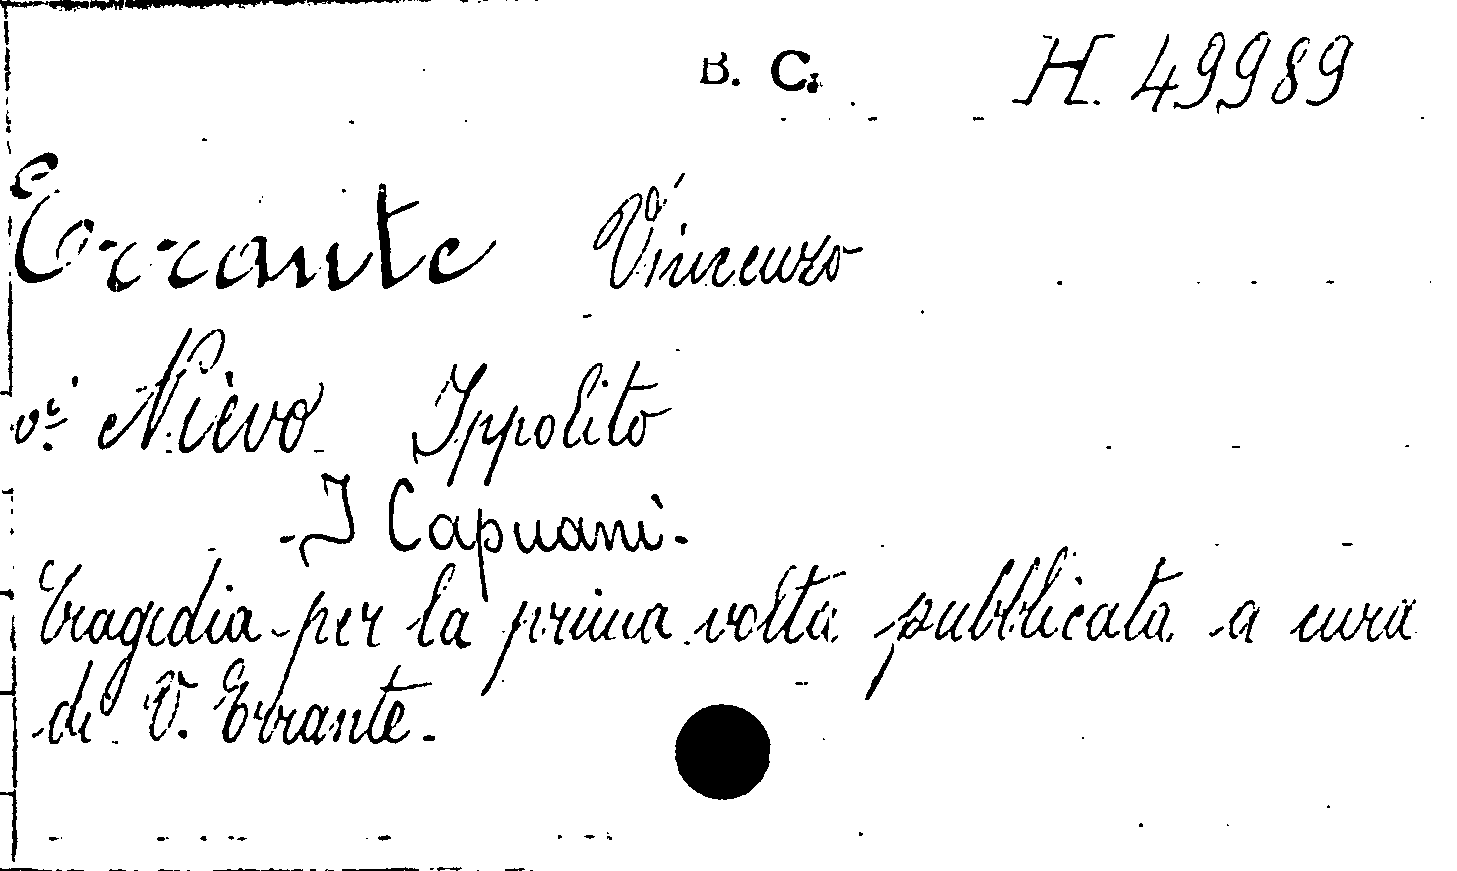 B. C. H. 49989
Errante Vincenzo
vi Nievo Ippolito
- I Capuani -
Tragedia per la prima volta pubblicata a cura
di V. Errante.